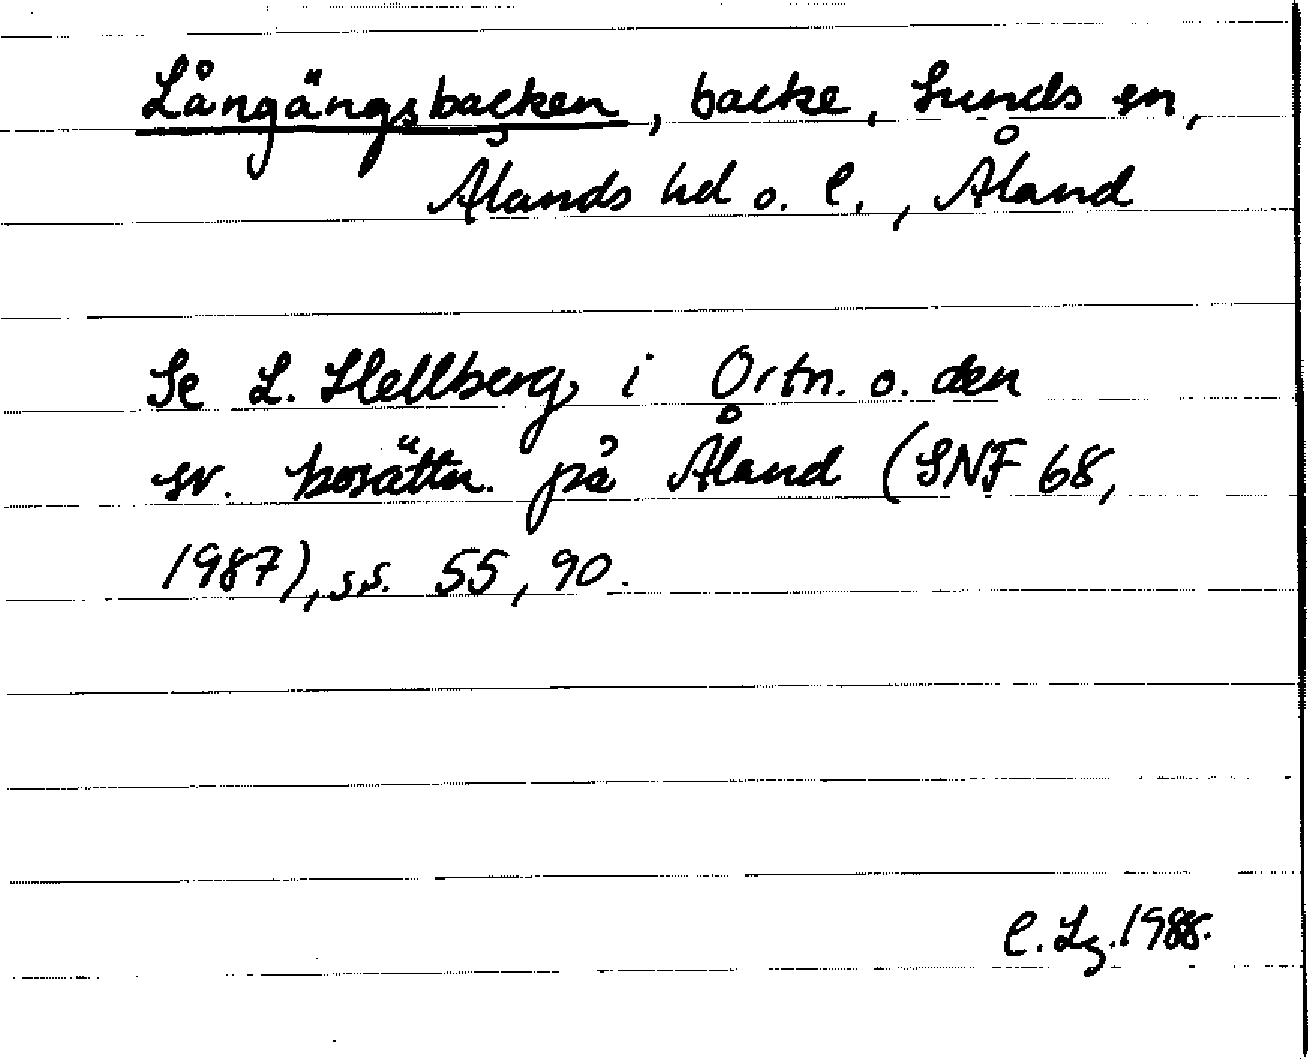 Långängsbacken, backe, Sunds sn,
Ålands hd o. l., Åland
Se L. Hellberg i Ortn. o. den
sv. bosättn. på Åland (SNF 68,
1987), ss. 55, 90.
C. Lg. 1988.